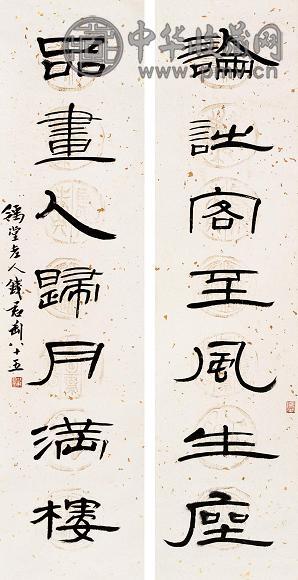 中华收藏网
論詩客至風生座
品畫人歸月滿樓
豫堂老人錢君匋八十五